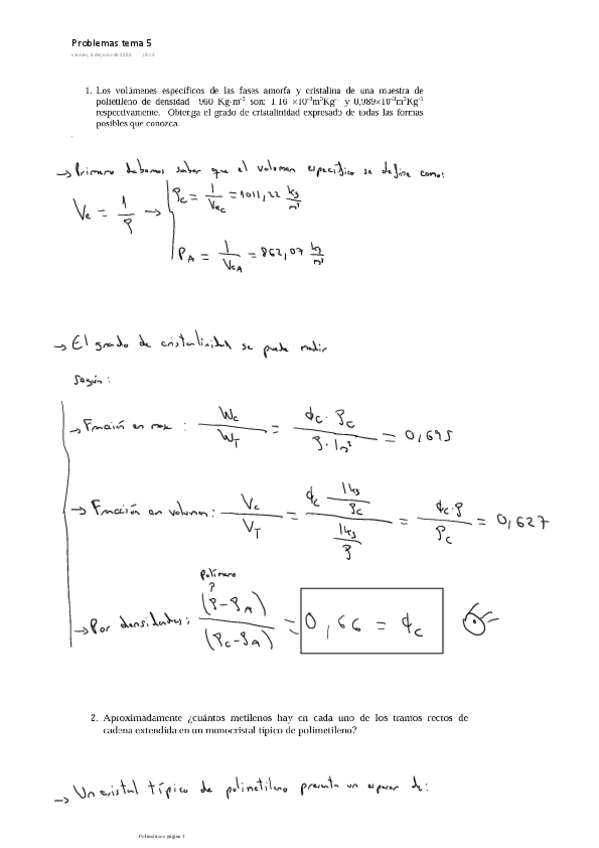 Problemas tema 5
1. Los volúmenes específicos de las fases amorfa y cristalina de una muestra de
polietileno de densidad 960 Kg·m⁻³ son: 1.16 ×10⁻³m³Kg⁻ y 0,989×10⁻³m³Kg⁻¹
respectivamente. Obtenga el grado de cristalinidad expresado de todas las formas
posibles que conozca.
→ Primero debemos saber que el volumen específico se define como:
Ve = 1/ρ → ρc = 1/Vec = 1011,22 kg/m³
ρA = 1/VeA = 862,07 kg/m³
→ El grado de cristalinidad se puede medir
según:
→ Fracción en masa : Wc/WT = ϕc · ρc / ρ · 1m³ = 0,695
→ Fracción en volumen: Vc/VT = ϕc 1kg/ρc / 1kg/ρ = ϕc·ρ/ρc = 0,627
polímero
→ Por densidades: (ρ-ρA)/(ρc-ρA) = 0,66 = ϕc
2. Aproximadamente ¿cuántos metilenos hay en cada uno de los tramos rectos de
cadena extendida en un monocristal típico de polimetileno?
→ Un cristal típico de polimetileno presenta un espesor de: